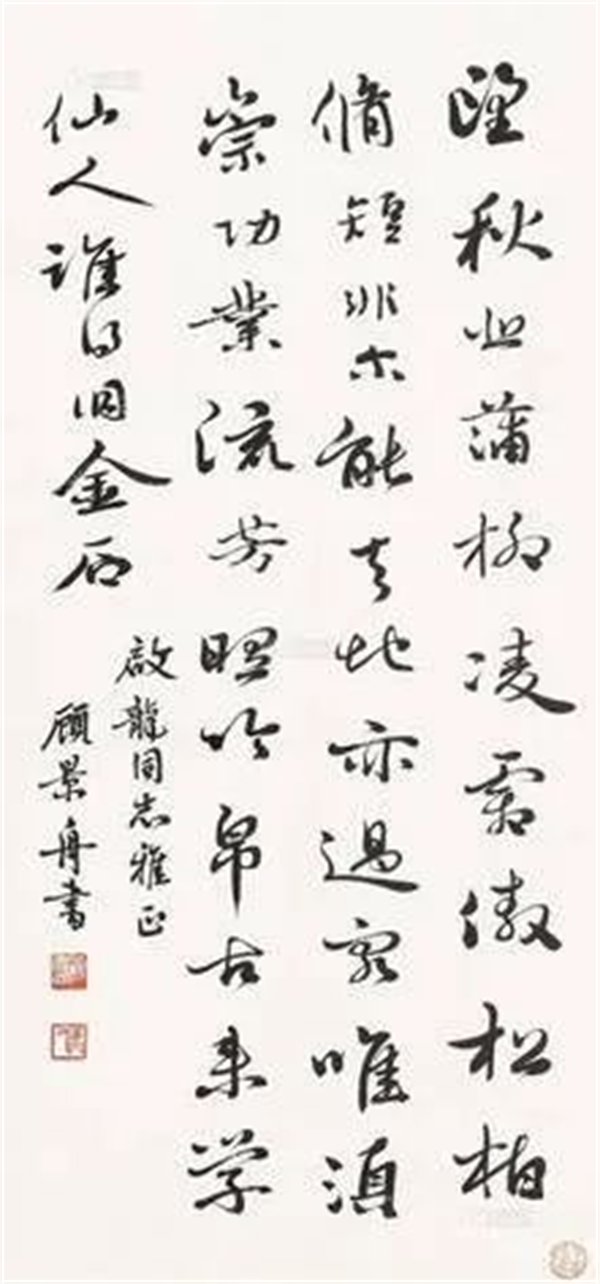 望秋悲蒲柳凌霜傲松柏
脩短非能天地亦過客唯湏
崇功業流芳昭竹帛古来学
仙人誰得同金石
啟龍同志雅正
顧景舟書